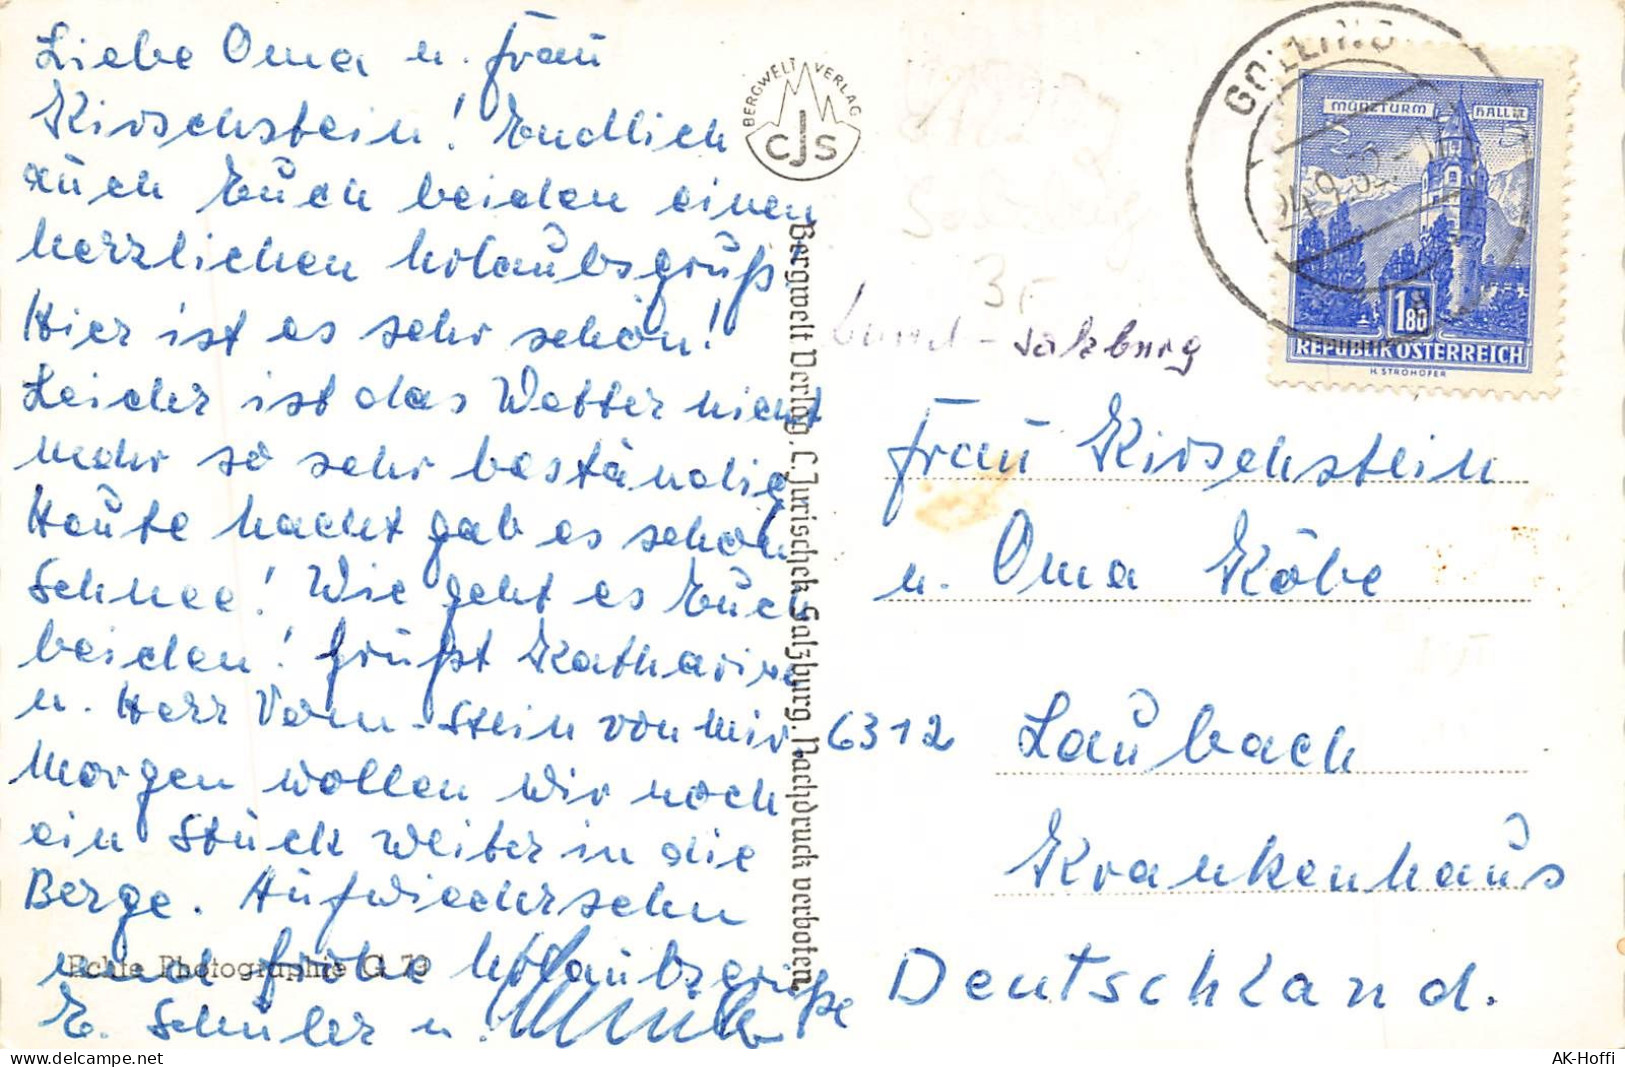 Liebe Oma u. Frau
Kirschstein! Endlich
auch Euch beiden einen
herzlichen Urlaubsgruß.
Hier ist es sehr schön!
Leider ist das Wetter nicht
mehr so sehr beständig
Heute nacht gab es schon
Schnee! Wie geht es Euch
beiden! Grüßt Katharina
u. Herr Vern-Stein von mir
Morgen wollen wir noch
ein Stück weiter in die
Berge. Aufwiedersehn
und frohe Urlaubsgrüße
E. Schüler u.
Echte Photographie G 79
BERGWELT VERLAG
CJS
Bergwelt Verlag, C. Jurischek Salzburg. Nachdruck verboten.
GOLLING
24.9.62
MÜNZTURM HALL I.T.
1.80
REPUBLIK ÖSTERREICH
H. STROHOFER
Salzburg
Frau Kirschstein
u. Oma Köbe
6312 Laubach
Krankenhaus
Deutschland.
AK-Hoffi
delcampe.net